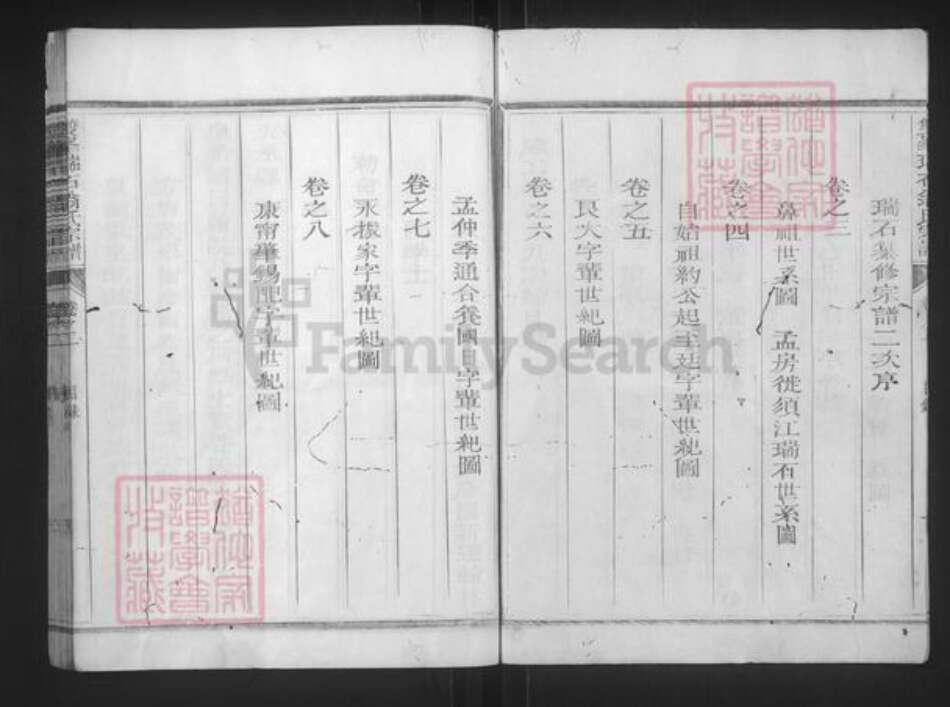 瑞石纂修宗譜二次序
卷之三
鼻祖世系圖 孟房徙須江瑞石世系圖
卷之四
自始祖約公起至廷字輩世紀圖
卷之五
良大字輩世紀圖
卷之六
孟仲季通合養國自字輩世紀圖
卷之七
永振家字輩世紀圖
卷之八
康甯華錫配字輩世紀圖
FamilySearch